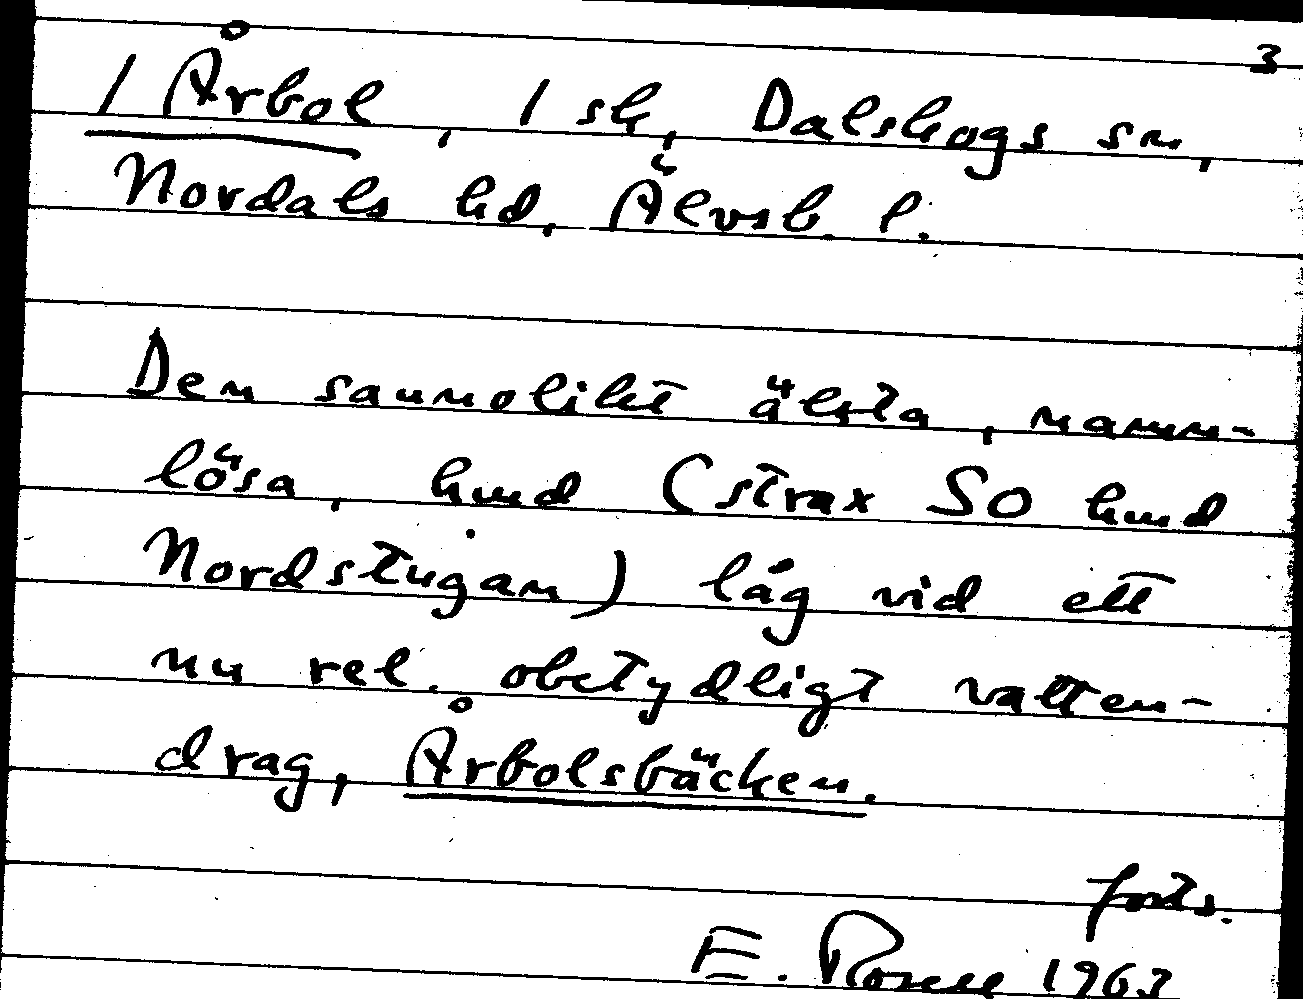 3
/ Årbol, 1 sk, Dalskogs sn,
Nordals hd, Älvsb. l.
Den sannolikt älsta, namn-
lösa, hmd (strax SO hmd
Nordstugan) låg vid ett
nu rel. obetydligt vatten-
drag, Årbolsbäcken.
forts.
E. Rosell 1963